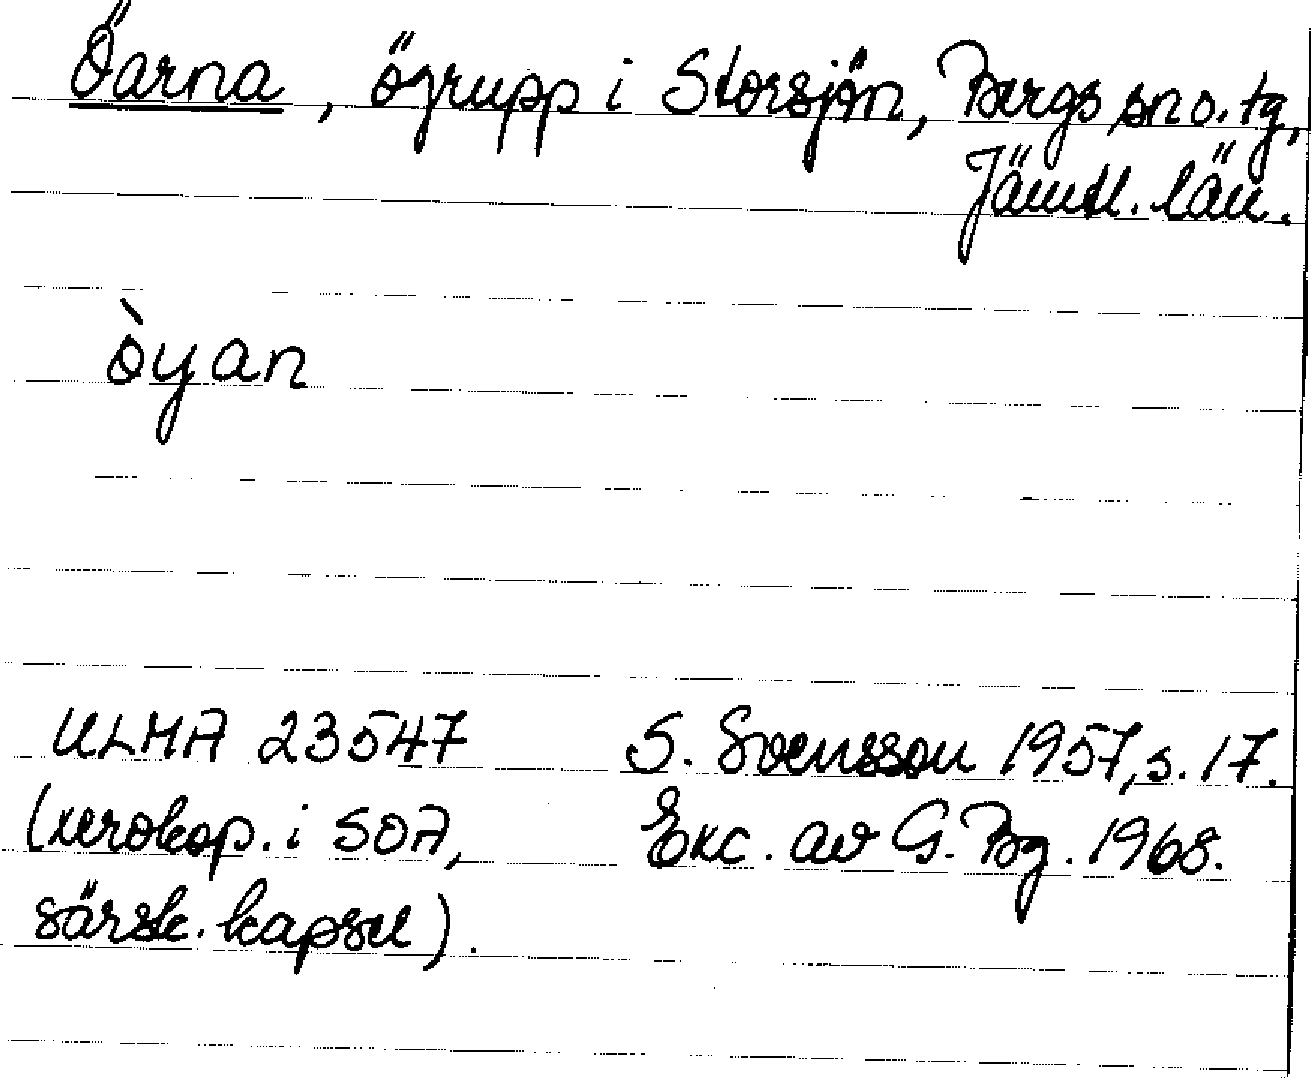 Öarna, ögrupp i Storsjön, Bergs sn o. tg,
Jämtl. län.
òyan
ULMA 23547 S. Svensson 1957, s. 17.
(xerokop. i SOA, Exc. av G. Bg. 1968.
särsk. kapsel).